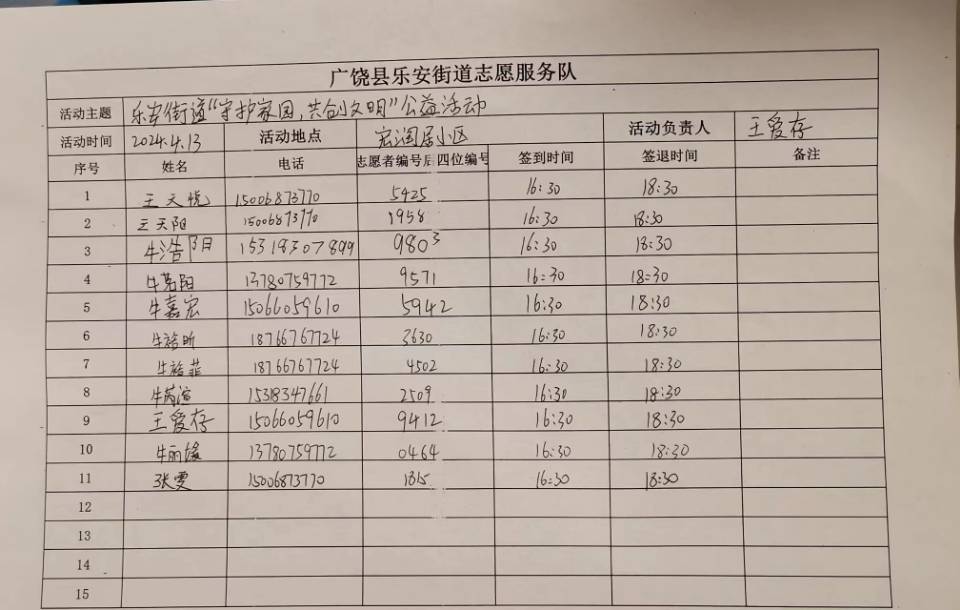 广饶县乐安街道志愿服务队
活动主题 乐安街道“守护家园,共创文明”公益活动
活动时间 2024.4.13 活动地点 宏润居小区 活动负责人 王爱存
序号 姓名 电话 志愿者编号后四位编号 签到时间 签退时间 备注
1 王天悦 15006873770 5425 16:30 18:30
2 王天阳 15006873770 1958 16:30 18:30
3 牛浩阳 15318307899 9803 16:30 18:30
4 牛 阳 13780759772 9571 16:30 18:30
5 牛嘉宏 15066059610 5942 16:30 18:30
6 牛 昕 18766767724 3630 16:30 18:30
7 牛 菲 18766767724 4502 16:30 18:30
8 牛 15318347661 2509 16:30 18:30
9 王爱存 15066059610 9412 16:30 18:30
10 牛丽媛 13780759772 0464 16:30 18:30
11 张雯 15006873770 1815 16:30 18:30
12
13
14
15